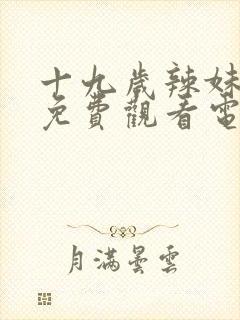 十九歲辣妹
免費觀看電
月滿曇雲